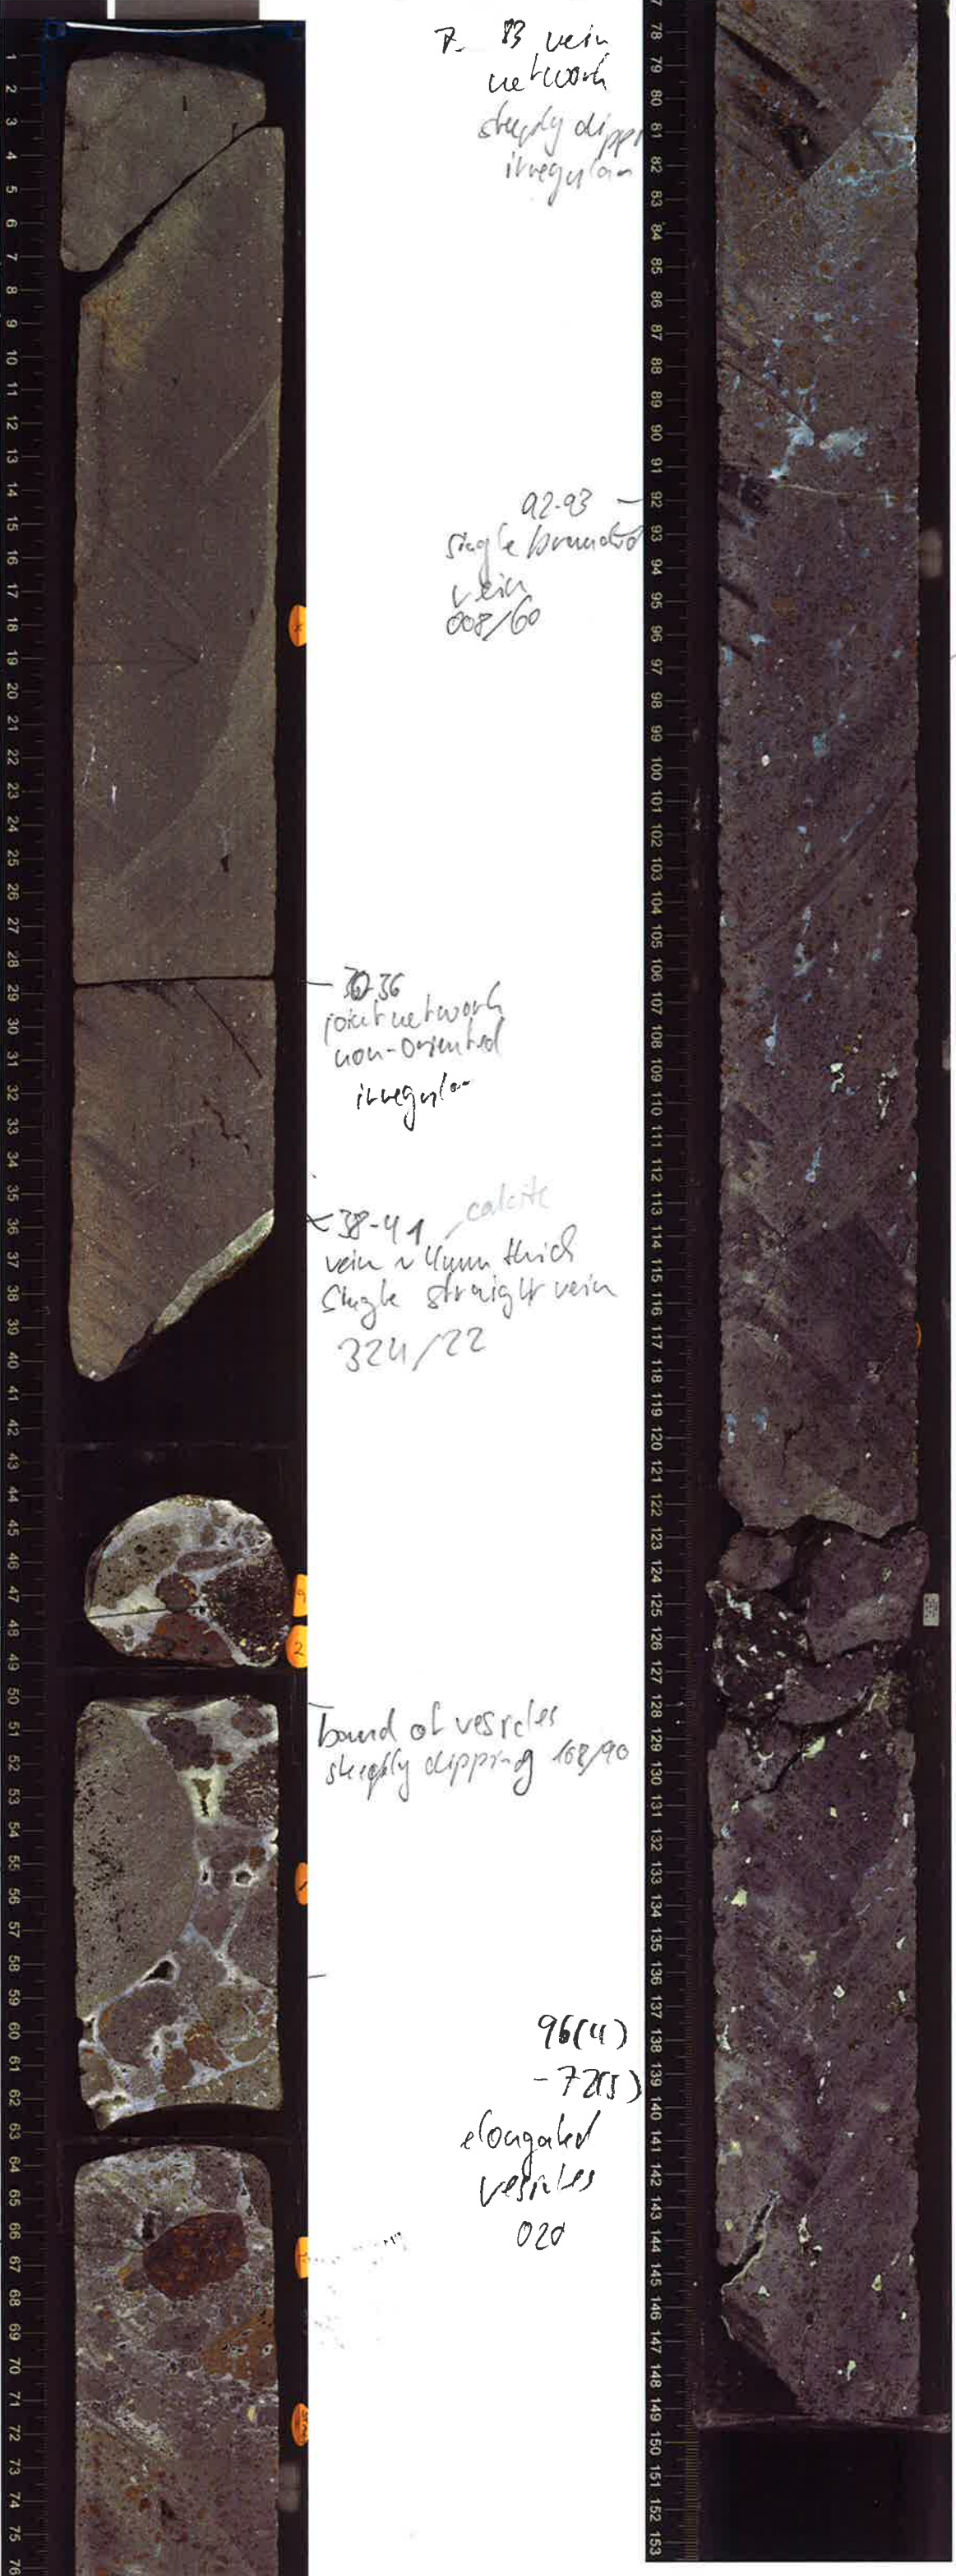 1 2 3 4 5 6 7 8 9 10 11 12 13 14 15 16 17 18 19 20 21 22 23 24 25 26 27 28 29 30 31 32 33 34 35 36 37 38 39 40 41 42 43 44 45 46 47 48 49 50 51 52 53 54 55 56 57 58 59 60 61 62 63 64 65 66 67 68 69 70 71 72 73 74 75 76
83 vein
network
steeply
irregular
92-93
single
vein
008/60
30-36
joint network
non-oriented
irregular
38-41 calcite
vein ~ 4mm thick
Single straight vein
324/22
2
band of vesicles
steeply dipping 108/90
96(4)
-72(5)
elongated
vesicles
020
78 79 80 81 82 83 84 85 86 87 88 89 90 91 92 93 94 95 96 97 98 99 100 101 102 103 104 105 106 107 108 109 110 111 112 113 114 115 116 117 118 119 120 121 122 123 124 125 126 127 128 129 130 131 132 133 134 135 136 137 138 139 140 141 142 143 144 145 146 147 148 149 150 151 152 153